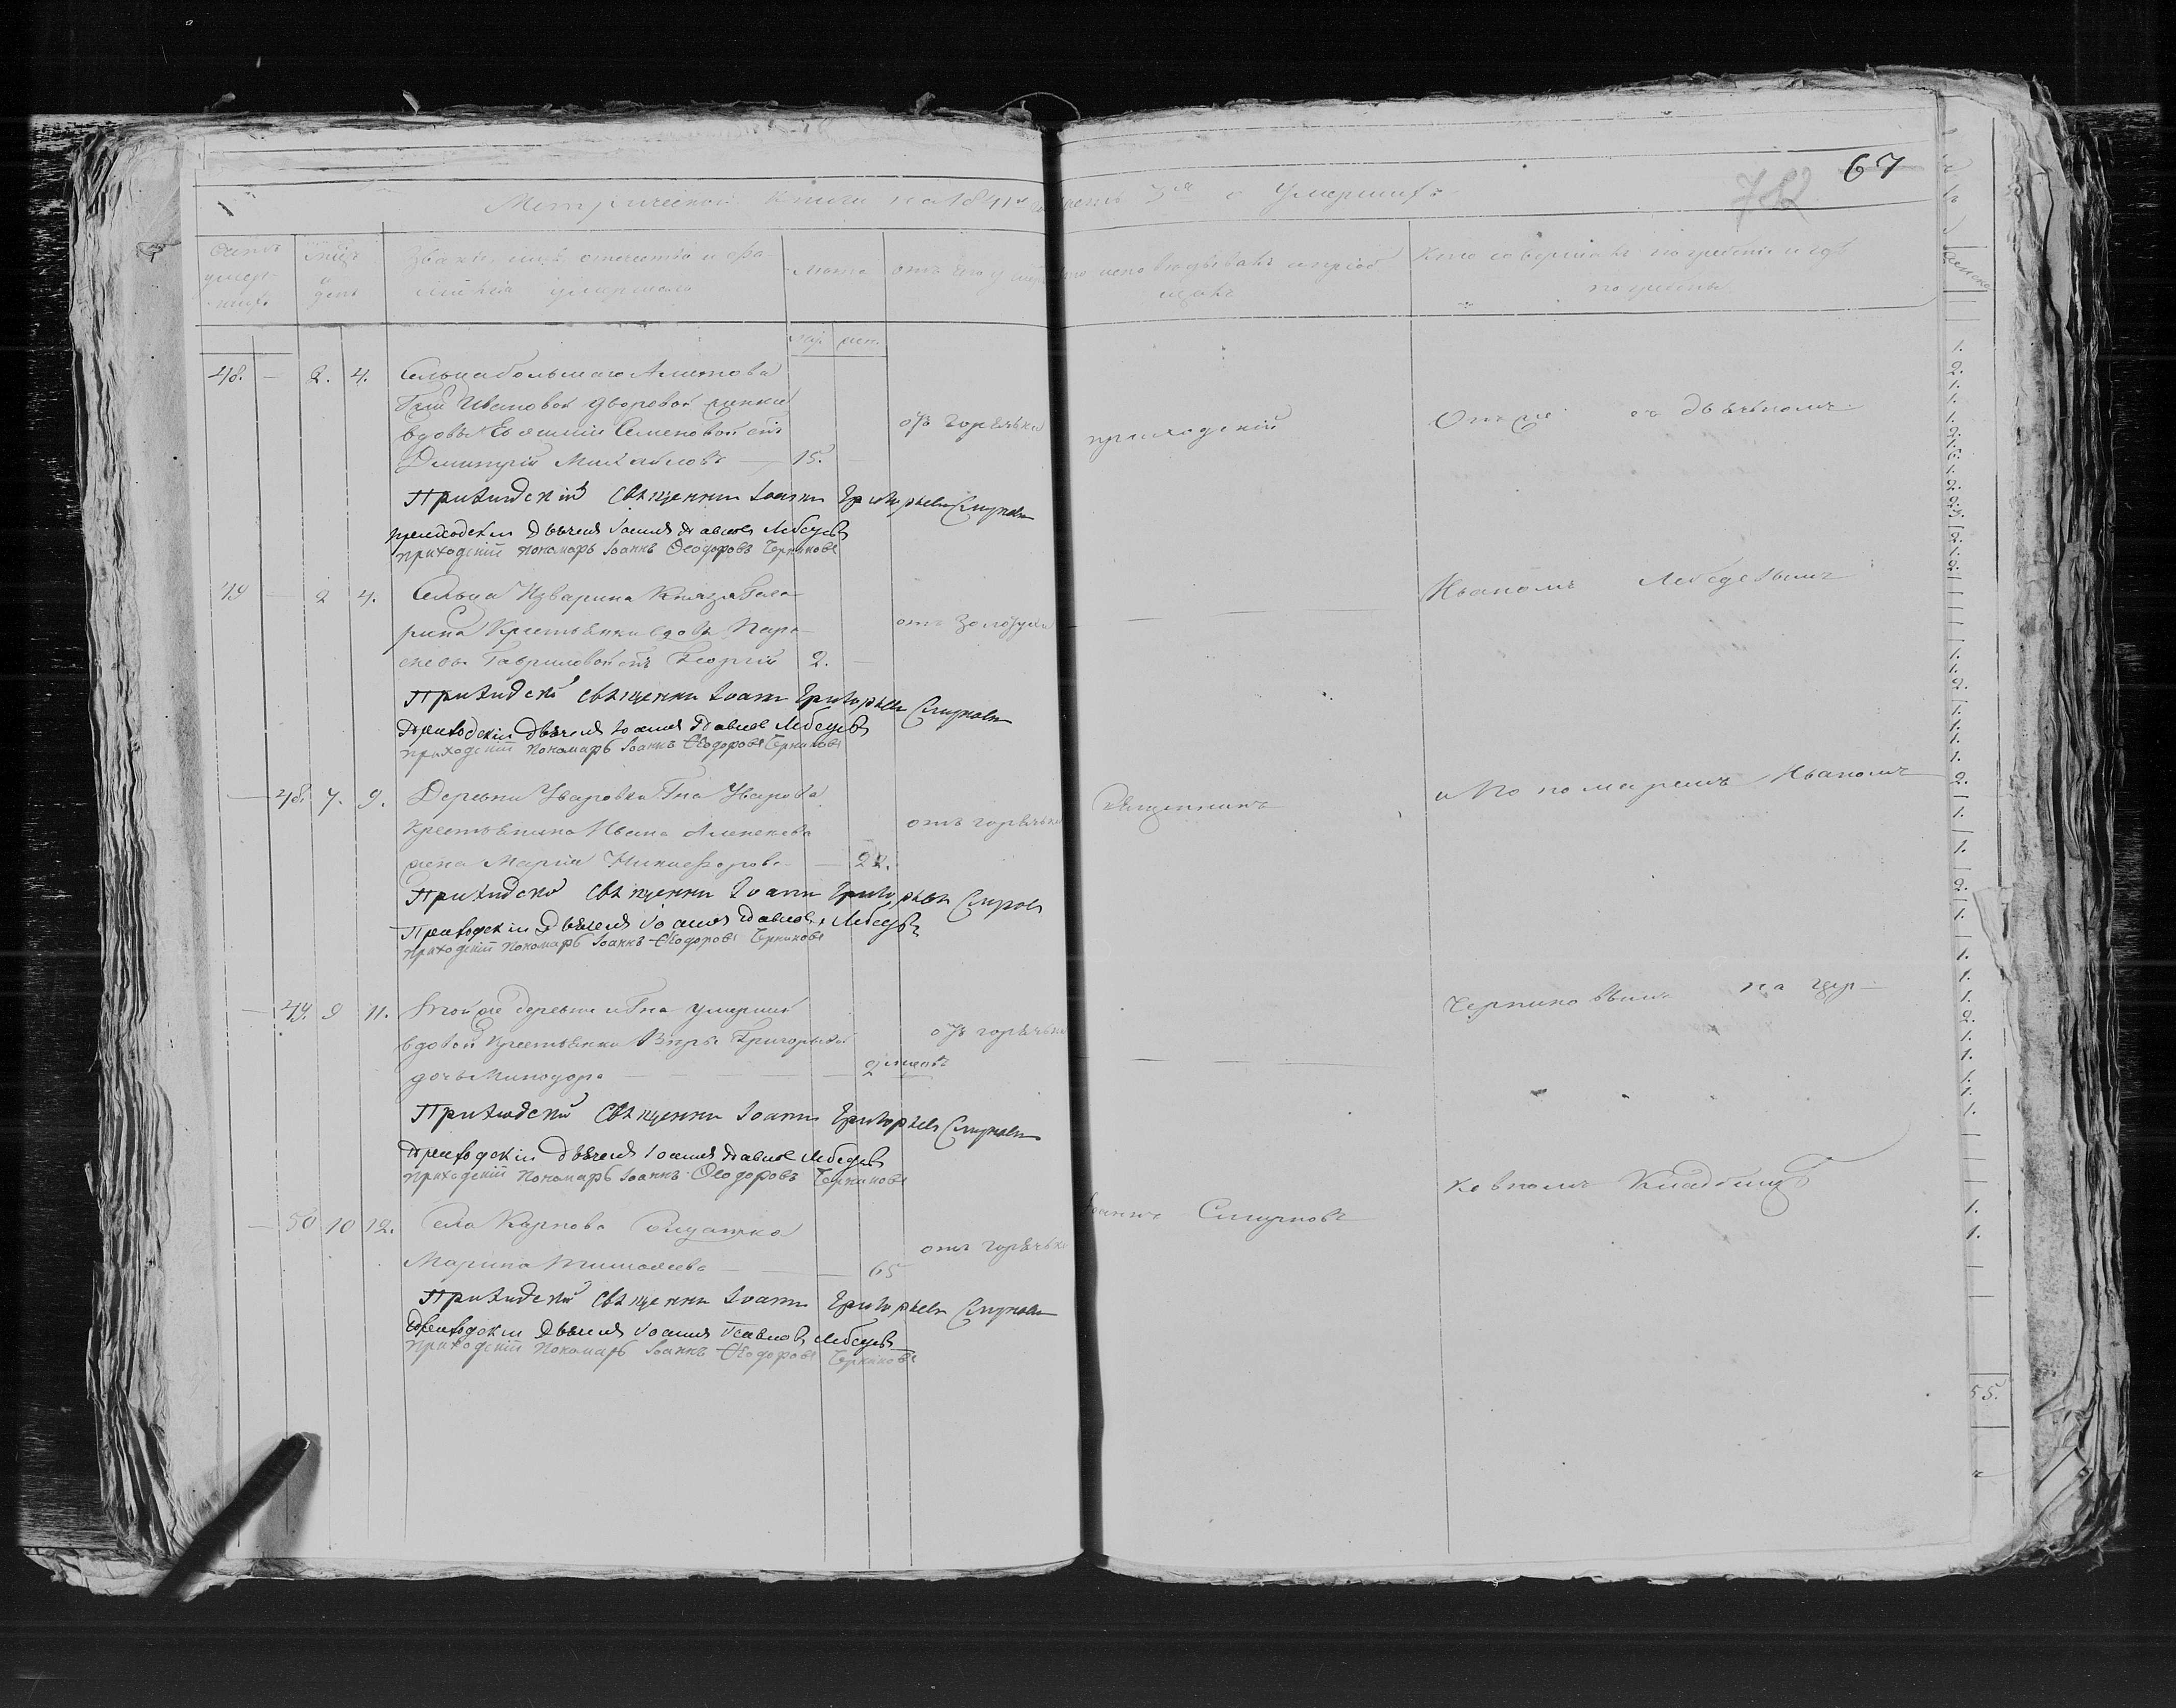 67
Метрической книги на 1841й часть 3я о Умершихъ
Счетъ умер-шихъ
день
Званіе, имя, отечество и фа-
милія умершаго
Лѣта
отъ чего умеръ
кто исповѣдывалъ и пріоб
щалъ
Кто совершалъ погребеніе и гдѣ
погребены
муж. жен.
48. — 2. 4. Сельца большаго Алитова
Гжи Ивановой дворовой женки
вдовы Евфиміи Семеновой снъ
Димитрій Михайловъ — 15.
отъ горячьки
приходскій
Онаже съ дьячькомъ
Приходскій Священникъ Іоаннъ Григорьевъ Смирновъ
приходскій Дьячекъ Іоаннъ Павловъ Лебедевъ
приходскій пономарь Іоаннъ Ѳеодоровъ Черниковъ
49 — 2 4. Сельца Изварина Князя Гага-
рина Крестьянки вдовы Пара-
скевы Гавриловой снъ Георгій 2. —
отъ золотухи
Иваномъ Лебедевымъ
Приходскій Священникъ Іоаннъ Григорьевъ Смирновъ
Приходскій Дьячекъ Іоаннъ Павловъ Лебедевъ
приходскій пономарь Іоаннъ Ѳеодоровъ Черниковъ
— 48. 7. 9. Деревни Уваровки Гна Уварова
Крестьянина Ивана
жена Марія Никифорова — 22.
отъ горячьки
Священникъ
и Пономаремъ Иваномъ
Приходскій Священникъ Іоаннъ Григорьевъ Смирновъ
Приходскій Дьячекъ Іоаннъ Павловъ Лебедевъ
приходскій пономарь Іоаннъ Ѳеодоровъ Черниковъ
— 49. 9 11. Втойже деревни и Гна умершей
вдовой Крестьянки Григорьевой
дочь Минодора — 2 мѣсяцъ
отъ горячьки
Черниковымъ на цер-
Приходскій Священникъ Іоаннъ Григорьевъ Смирновъ
Приходскій Дьячекъ Іоаннъ Павловъ Лебедевъ
приходскій пономарь Іоаннъ Ѳеодоровъ Черниковъ
— 50 10 12. Села Карпова Солдатка
Марина Тимоѳеева — 65
отъ горячьки
Іоаннъ Смирновъ
ковномъ Кладбищѣ
Приходскій Священникъ Іоаннъ Григорьевъ Смирновъ
Приходскій Дьячекъ Іоаннъ Павловъ Лебедевъ
приходскій Пономарь Іоаннъ Ѳеодоровъ Черниковъ
55.